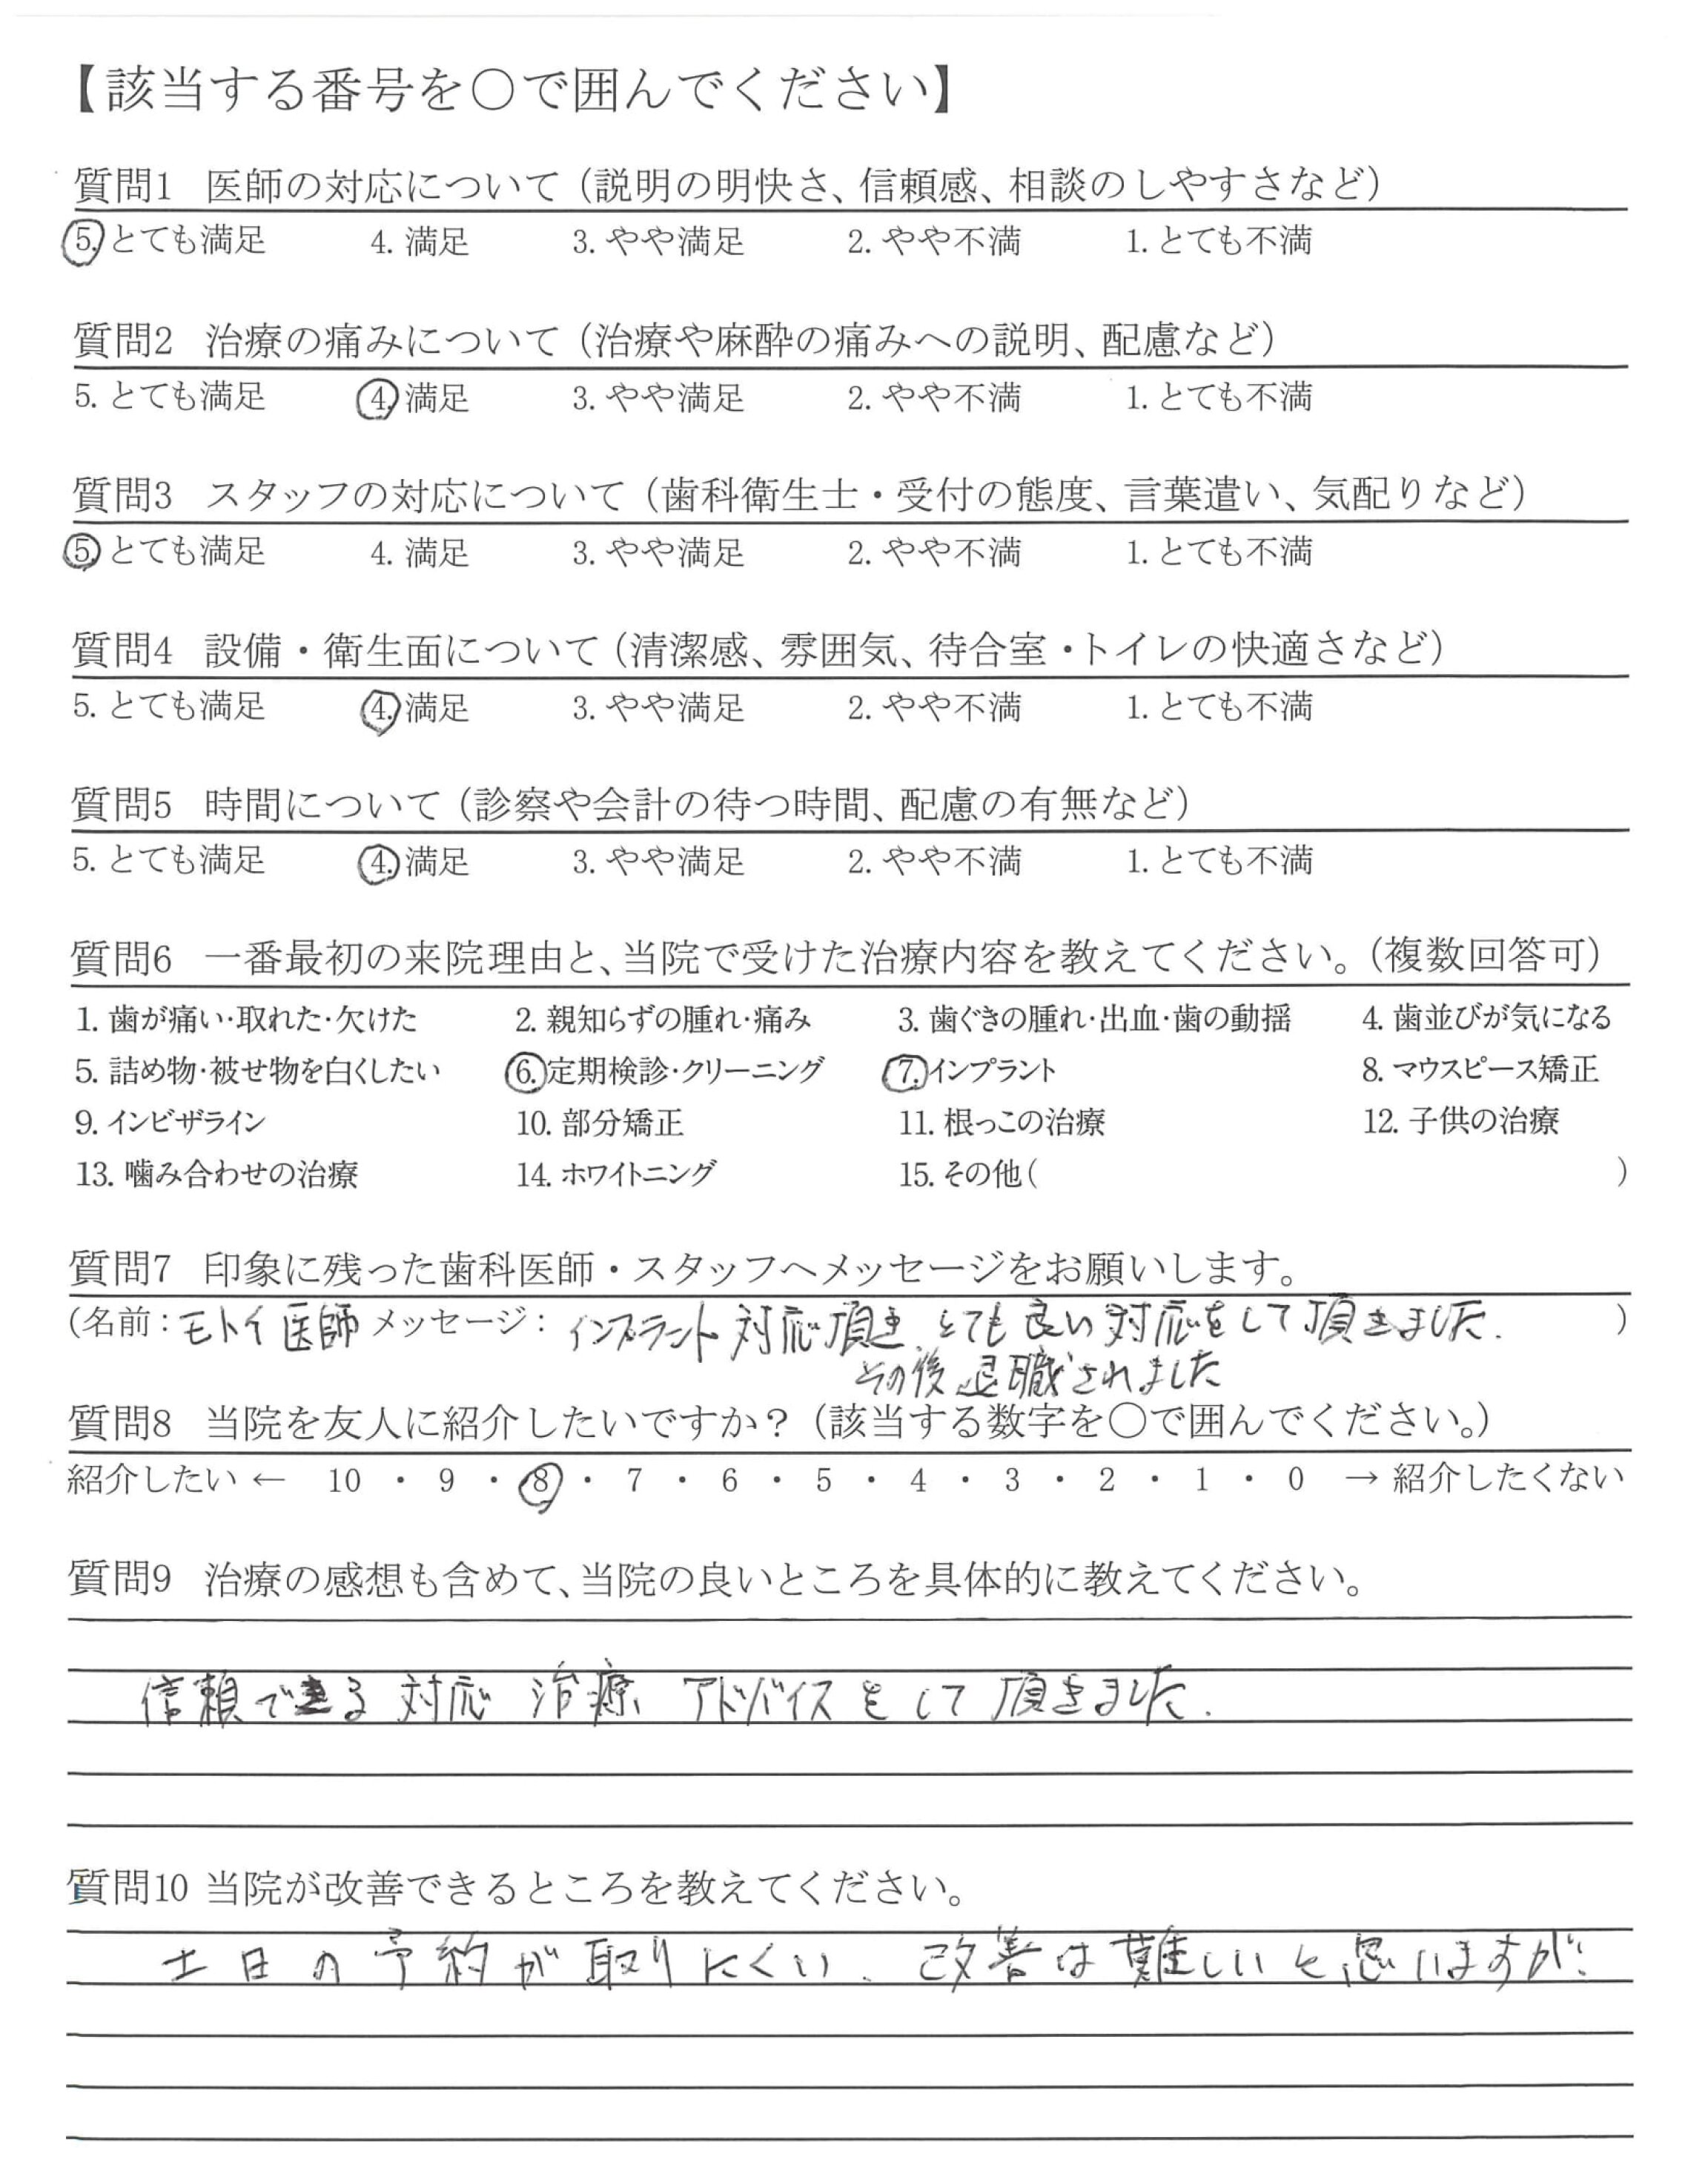 【該当する番号を○で囲んでください】
質問1 医師の対応について（説明の明快さ、信頼感、相談のしやすさなど）
5. とても満足 4. 満足 3. やや満足 2. やや不満 1. とても不満
質問2 治療の痛みについて（治療や麻酔の痛みへの説明、配慮など）
5. とても満足 4. 満足 3. やや満足 2. やや不満 1. とても不満
質問3 スタッフの対応について（歯科衛生士・受付の態度、言葉遣い、気配りなど）
5. とても満足 4. 満足 3. やや満足 2. やや不満 1. とても不満
質問4 設備・衛生面について（清潔感、雰囲気、待合室・トイレの快適さなど）
5. とても満足 4. 満足 3. やや満足 2. やや不満 1. とても不満
質問5 時間について（診察や会計の待つ時間、配慮の有無など）
5. とても満足 4. 満足 3. やや満足 2. やや不満 1. とても不満
質問6 一番最初の来院理由と、当院で受けた治療内容を教えてください。（複数回答可）
1. 歯が痛い・取れた・欠けた 2. 親知らずの腫れ・痛み 3. 歯ぐきの腫れ・出血・歯の動揺 4. 歯並びが気になる
5. 詰め物・被せ物を白くしたい 6. 定期検診・クリーニング 7. インプラント 8. マウスピース矯正
9. インビザライン 10. 部分矯正 11. 根っこの治療 12. 子供の治療
13. 噛み合わせの治療 14. ホワイトニング 15. その他（ ）
質問7 印象に残った歯科医師・スタッフへメッセージをお願いします。
（名前：モトイ医師 メッセージ：インプラント対応頂き、とても良い対応をして頂きました. ）
その後退職されました
質問8 当院を友人に紹介したいですか？（該当する数字を○で囲んでください。）
紹介したい ← 10 ・ 9 ・ 8 ・ 7 ・ 6 ・ 5 ・ 4 ・ 3 ・ 2 ・ 1 ・ 0 → 紹介したくない
質問9 治療の感想も含めて、当院の良いところを具体的に教えてください。
信頼できる対応 治療、アドバイスをして頂きました.
質問10 当院が改善できるところを教えてください。
土日の予約が取りにくい、改善は難しいと思いますが…